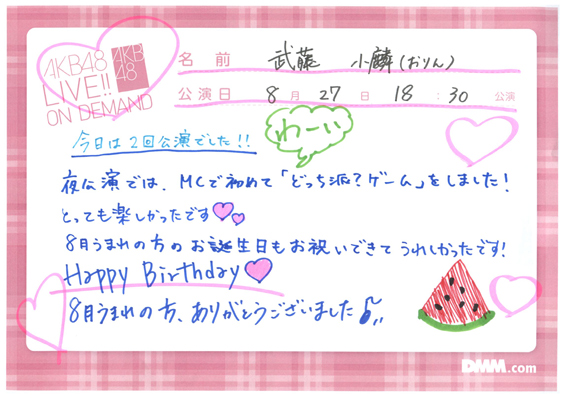 AKB48
LIVE!!
ON DEMAND
AKB
48
名前 武藤 小麟(おりん)
公演日 8月27日 18:30公演
わーい
今日は2回公演でした!!
夜公演では、MCで初めて「どっち派?ゲーム」をしました!
とっても楽しかったです
8月うまれの方のお誕生日もお祝いできてうれしかったです!
Happy Birthday
8月うまれの方、ありがとうございました
DMM.com